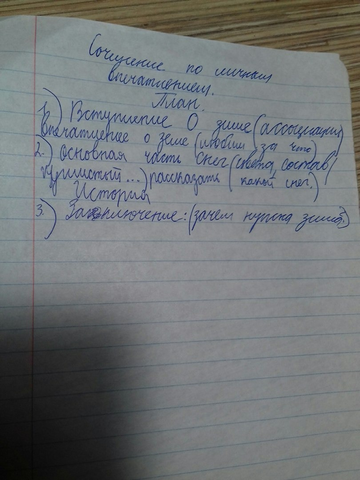 Сочинение по личным
впечатлениям.
План.
1.) Вступление О зиме (ассоциации)
впечатление о зиме (любим за что)
2.) основная часть снег (цвета, состав
пушистый...) рассказать (какой снег.)
История
3.) Заключение: (зачем нужна зима?)